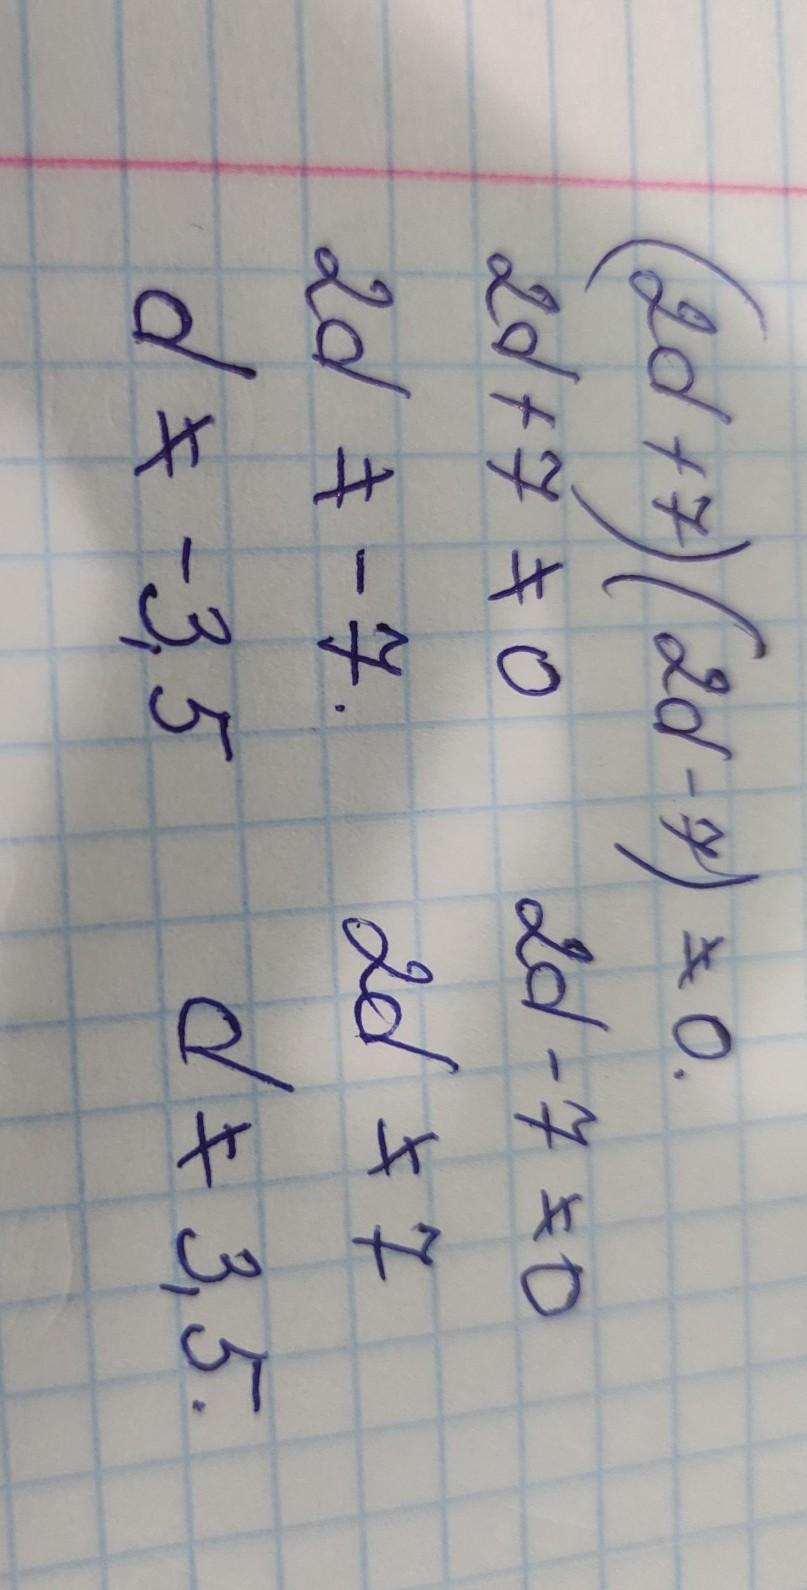 (2d+7)(2d-7) ≠ 0.
2d+7 ≠ 0 2d-7 ≠ 0
2d ≠ -7. 2d ≠ 7
d ≠ -3,5 d ≠ 3,5.